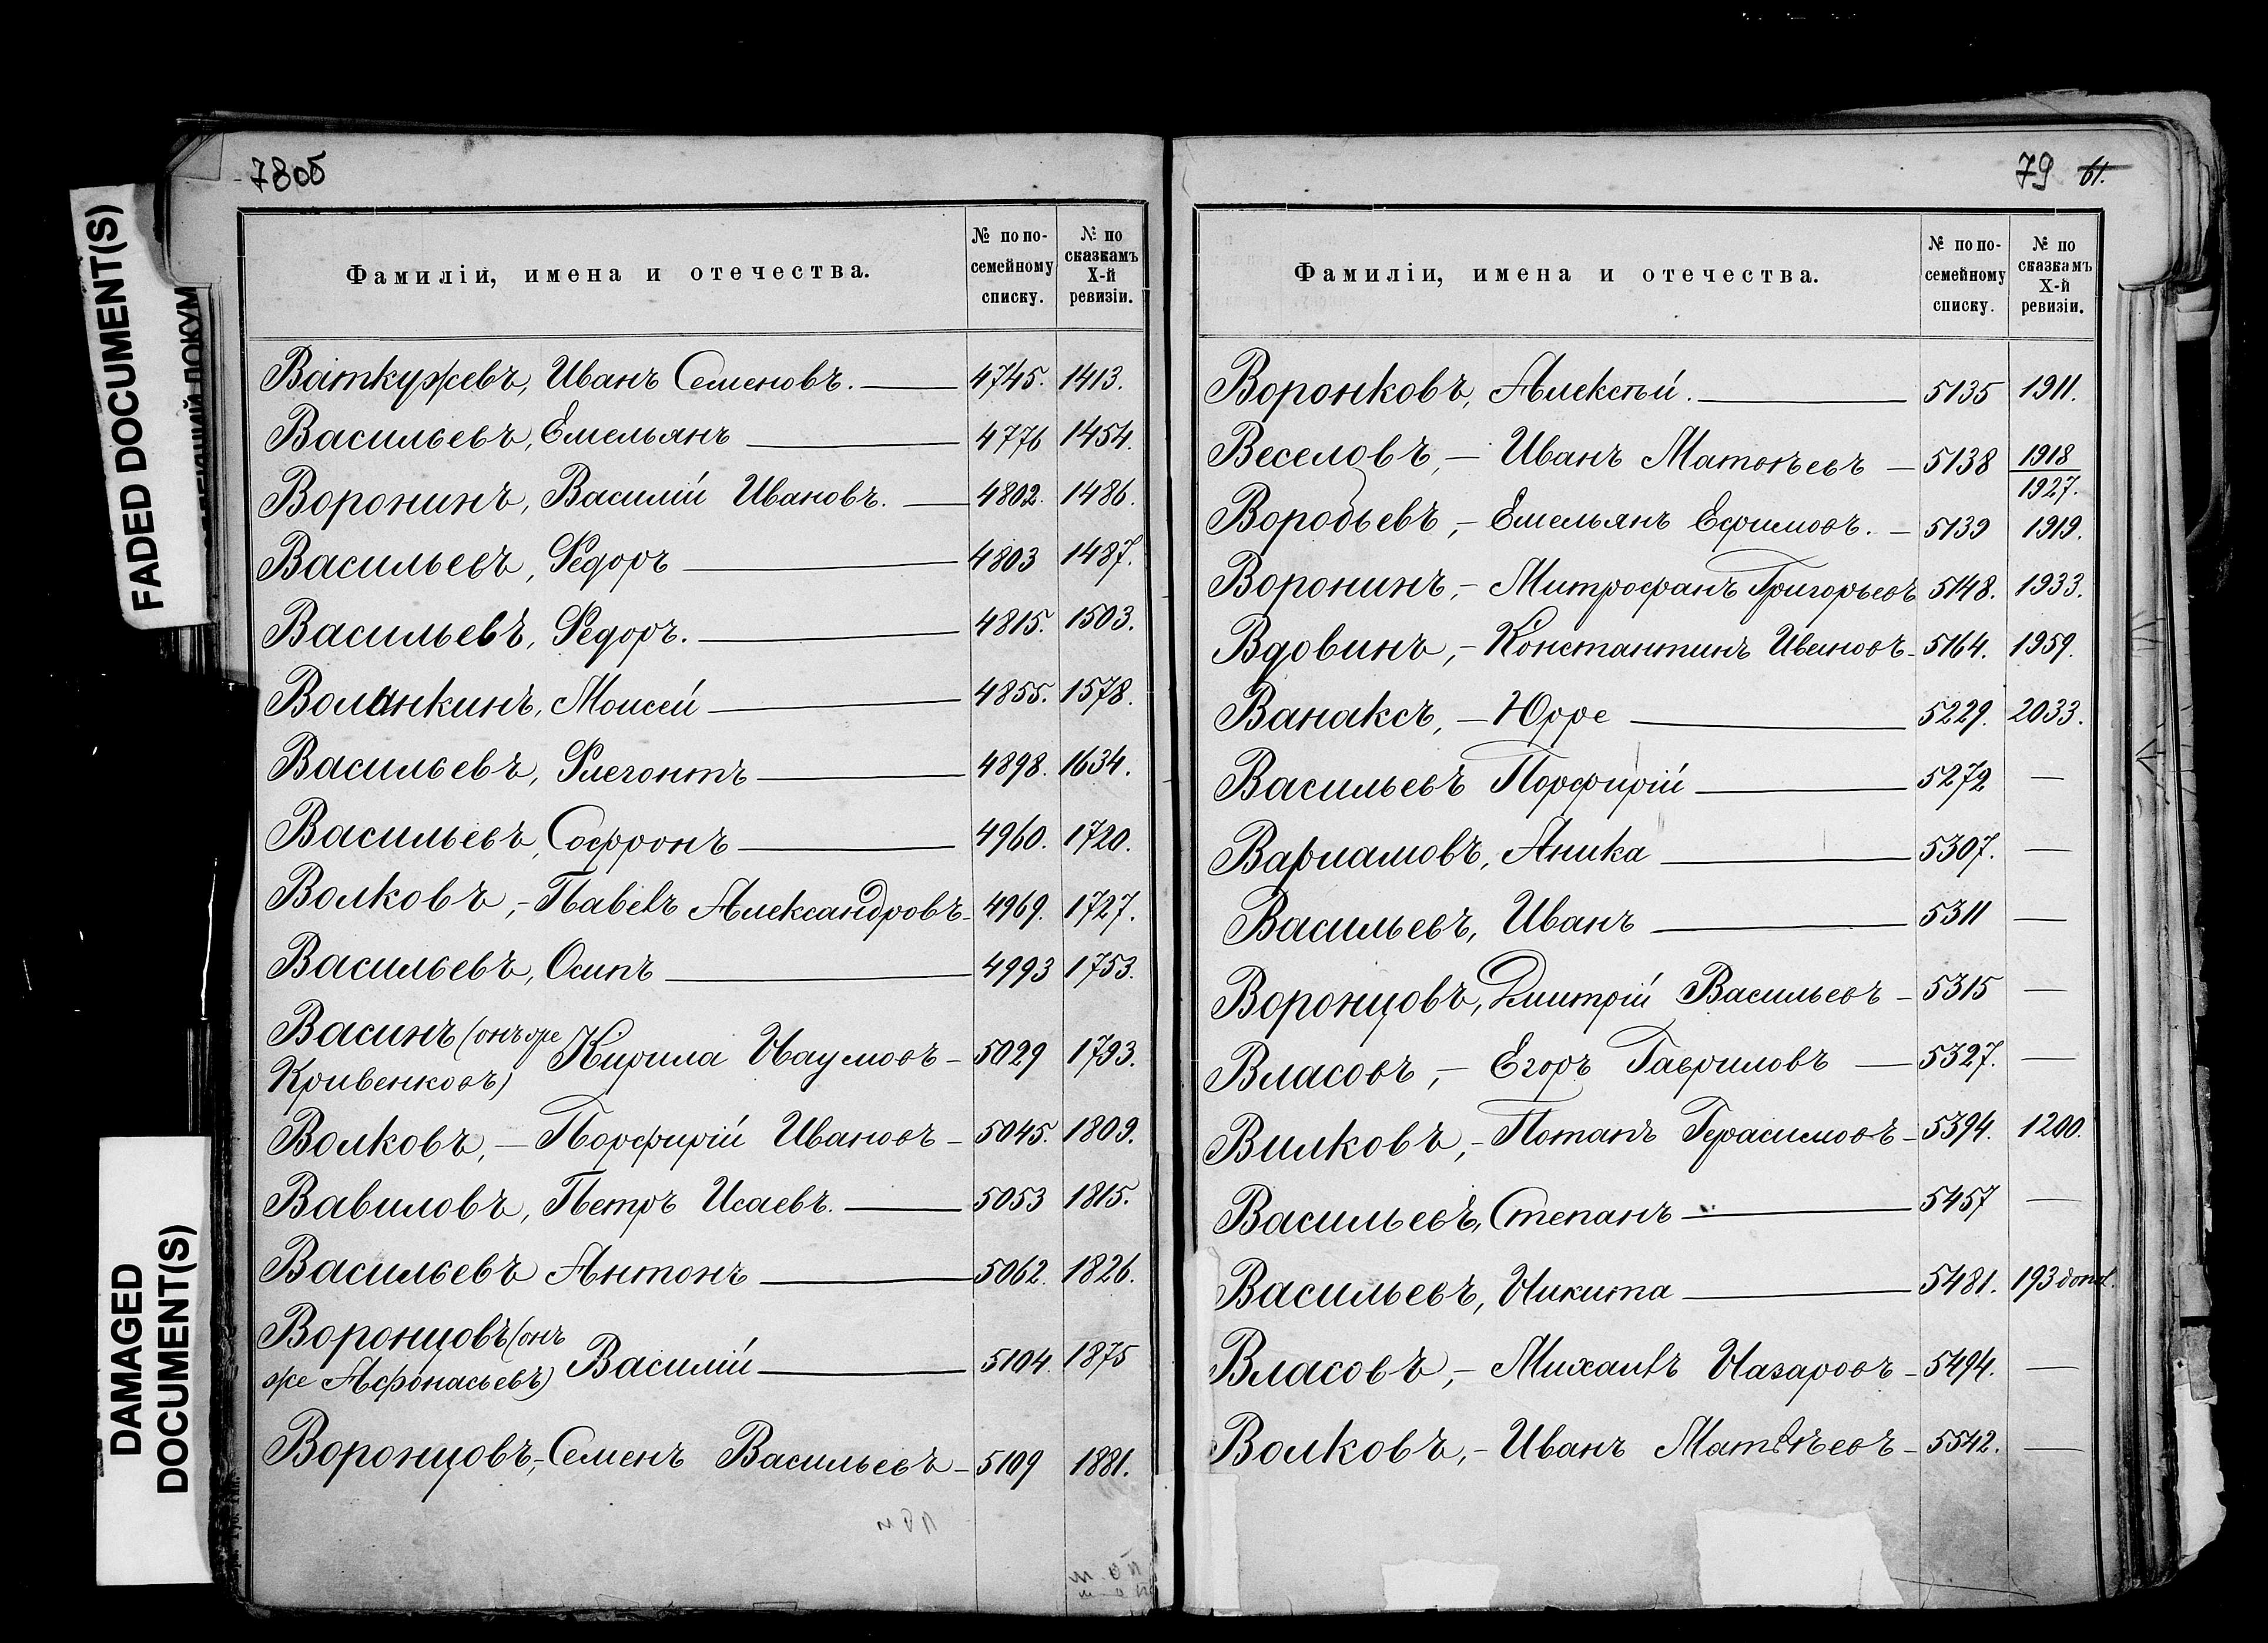 78об
Фамиліи, имена и отечества.
№ по по-
семейному
списку.
№ по
сказкамъ
X-й
ревизіи.
Ваткужевъ, Иванъ Семеновъ. — 4745. 1413.
Васильевъ, Емельянъ — 4776 1454.
Воронинъ, Василій Ивановъ. — 4802. 1486.
Васильевъ, Ѳедоръ — 4803 1487.
Васильевъ, Ѳедоръ. — 4815. 1503.
Воланкинъ, Моисей — 4855. 1578.
Васильевъ, Флегонтъ — 4898. 1634.
Васильевъ, Софронъ — 4960. 1720.
Волковъ, - Павелъ Александровъ - 4969. 1727.
Васильевъ, Осипъ — 4993 1753.
Васинъ (онъ же
Кривенковъ) Кирила Наумовъ - 5029 1793.
Волковъ, — Порфирій Ивановъ - 5045. 1809.
Вавиловъ, Петръ Исаевъ. — 5053 1815.
Васильевъ Антонъ — 5062. 1826.
Воронцовъ (онъ
же Афонасьевъ) Василій — 5104. 1875
Воронцовъ, - Семенъ Васильевъ - 5109 1881.
79 61.
Фамиліи, имена и отечества.
№ по по-
семейному
списку.
№ по
сказкамъ
X-й
ревизіи.
Воронковъ, Алексѣй. — 5135 1911.
Веселовъ, — Иванъ Матвѣевъ — 5138 1918
1927.
Воробьевъ, - Емельянъ Ефимовъ. - 5139 1919.
Воронинъ, - Митрофанъ Григорьевъ 5148. 1933.
Вдовинъ, - Константинъ Ивановъ - 5164. 1959.
Ванаксъ, — Юрре — 5229. 2033.
Васильевъ Порфирій — 5272 —
Варламовъ, Аника — 5307. —
Васильевъ, Иванъ — 5311 —
Воронцовъ, Дмитрій Васильевъ - 5315 —
Власовъ, - Егоръ Гавриловъ — 5327. —
Вилковъ, - Потапъ Герасимовъ - 5394. 1200.
Васильевъ, Степанъ — 5457 —
Васильевъ, Никита — 5481. 193 доп.
Власовъ, - Михаилъ Назаровъ - 5494. —
Волковъ, - Иванъ Матвѣевъ - 5542. —
FADED DOCUMENT(S)
DAMAGED
DOCUMENT(S)